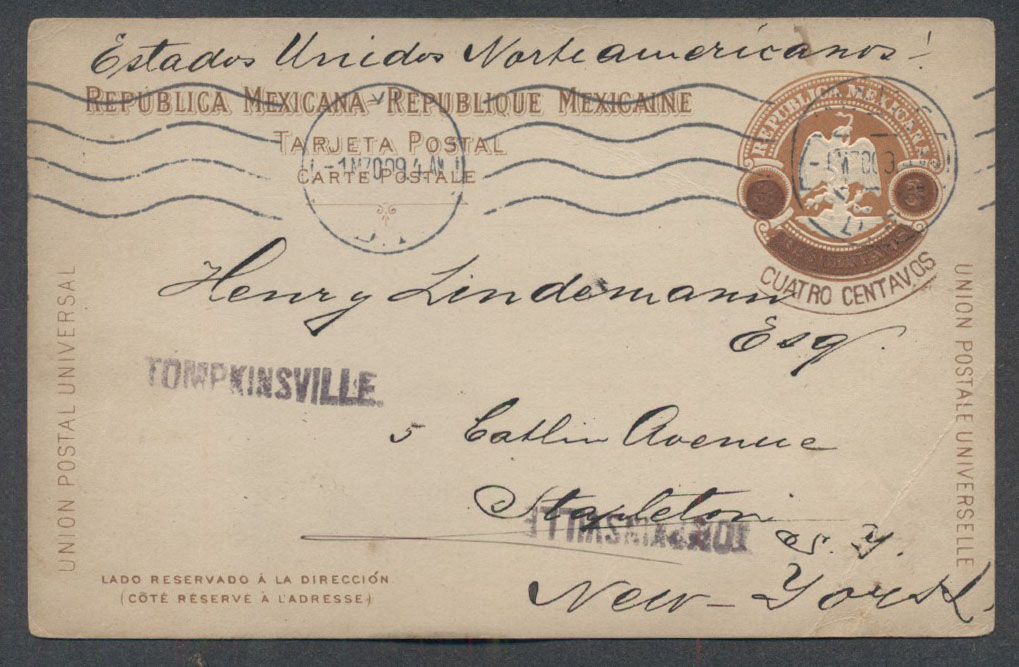 Estados Unidos Norteamericanos!
REPÚBLICA MEXICANA-REPUBLIQUE MEXICAINE
TARJETA POSTAL
CARTE POSTALE
REPÚBLICA MEXICANA
CUATRO CENTAVOS
UNION POSTAL UNIVERSAL
UNION POSTALE UNIVERSELLE
Henry Lindemann
Esq.
TOMPKINSVILLE.
5 Catlin Avenue
Stapleton
TOMPKINSVILLE
S. Y.
New-York
LADO RESERVADO Á LA DIRECCIÓN.
(CÔTÉ RÉSERVÉ À L'ADRESSE)